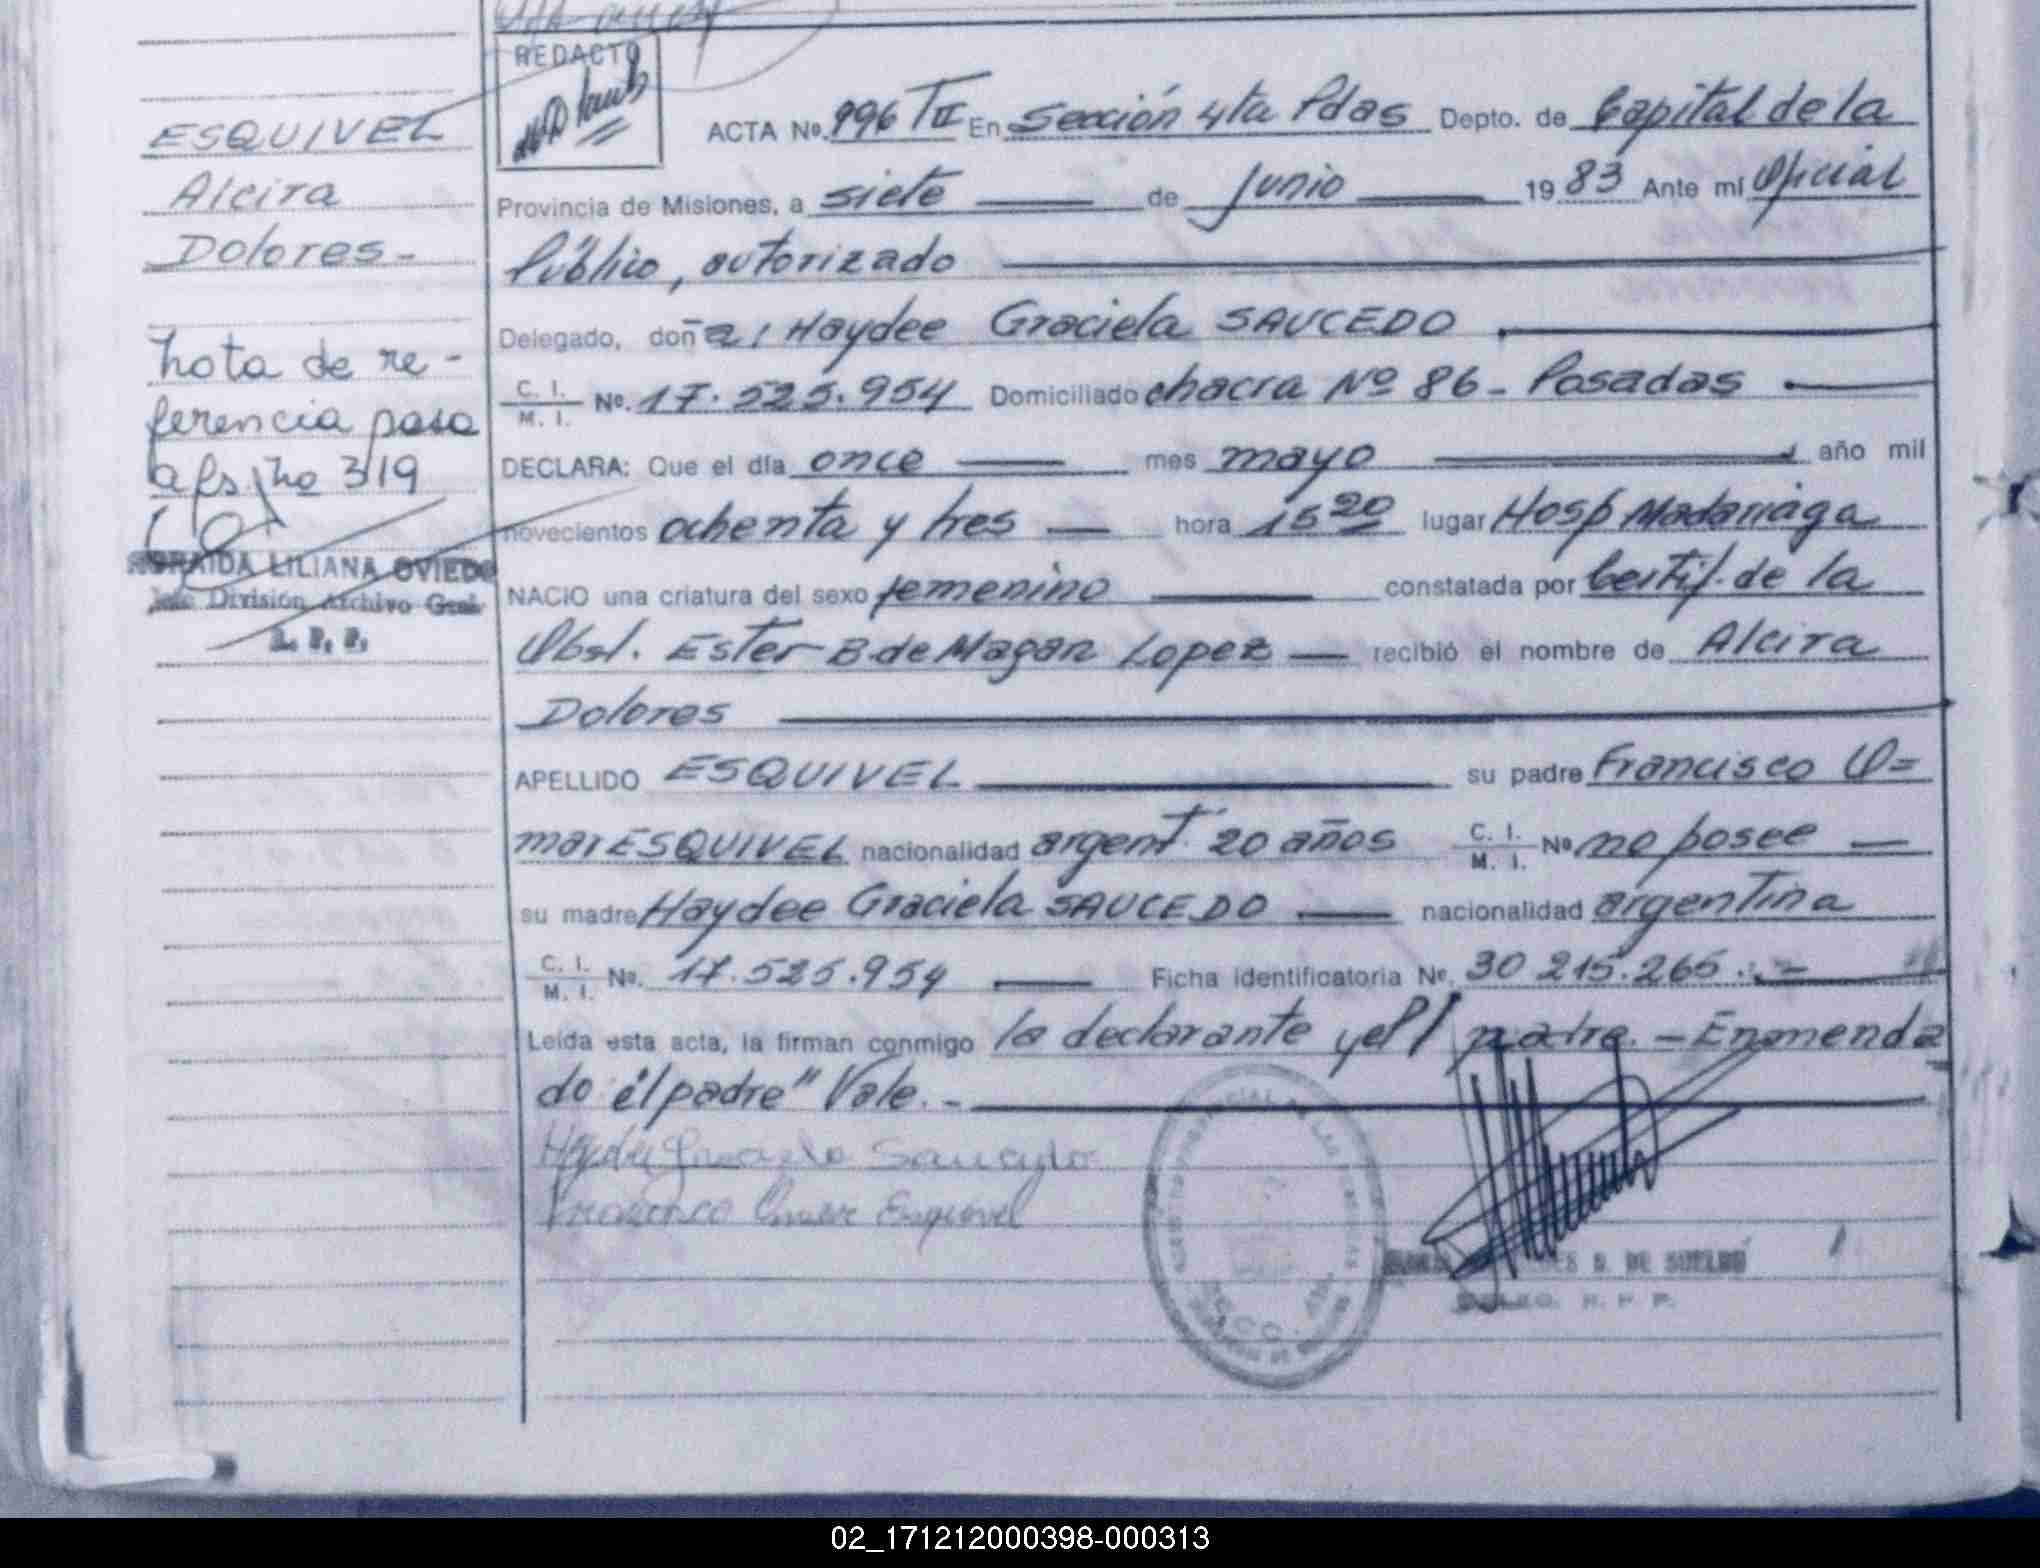 REDACTO
ESQUIVEL
Alcira
Dolores-
nota de re-
ferencia pasa
a fs. no 319
LILIANA OVIEDO
Jefe División Archivo Gral.
R. P. P.
ACTA No. 996 TII En Sección 4ta Pdas Depto. de Capital de la
Provincia de Misiones, a siete de Junio 1983 Ante mí Oficial
Público, autorizado
Delegado, doña: Haydee Graciela SAUCEDO
C. I. / M. I. No. 17.525.954 Domiciliado chacra No 86 - Posadas
DECLARA: Que el día once mes mayo año mil
novecientos ochenta y tres hora 15 20 lugar Hosp Madariaga
NACIO una criatura del sexo femenino constatada por Certif. de la
Obst. Ester B. de Magan Lopez recibió el nombre de Alcira
Dolores
APELLIDO ESQUIVEL su padre Francisco O=
mar ESQUIVEL nacionalidad argent. 20 años C. I. / M. I. No no posee
su madre Haydee Graciela SAUCEDO nacionalidad argentina
C. I. / M. I. No. 17.525.954 Ficha identificatoria No. 30 215.265.-
Leída esta acta, la firman conmigo la declarante y el padre. - Enmenda
do "el padre" Vale. -
Haydee Graciela Saucedo
Francisco Omar Esquivel
D. DE SUELDO
R. P. P.
02_171212000398-000313